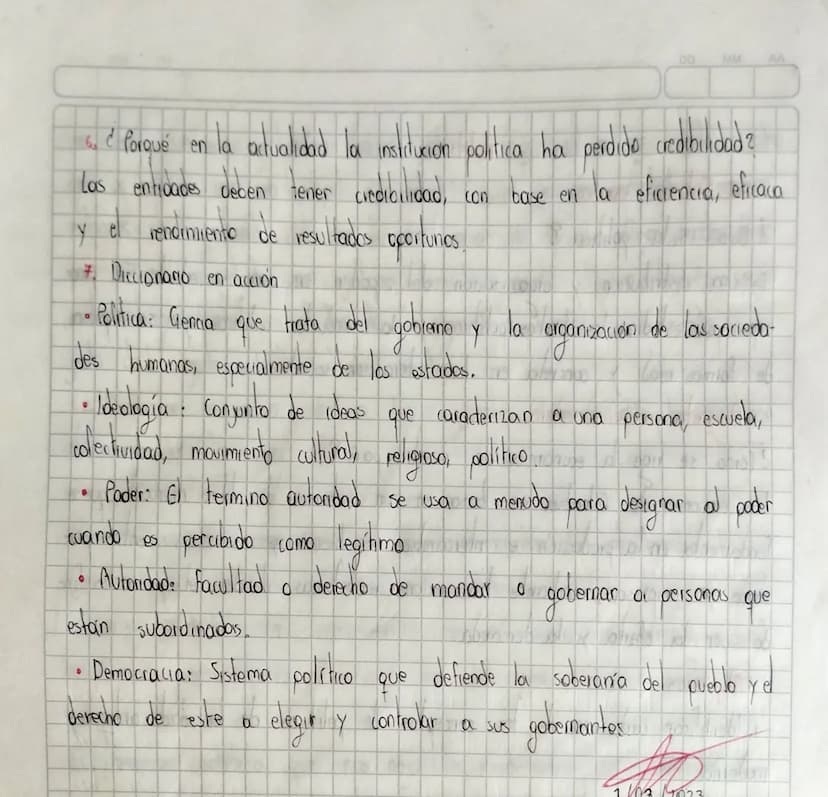 6. ¿Porqué en la actualidad la institucion politica ha perdido credibilidad?
Las entidades deben tener credibilidad, con base en la eficiencia, eficaca
y el rendimiento de resultados oportunos.
7. Diccionario en acción
• Política: Ciencia que trata del gobierno y la organización de las socieda-
des humanas, especialmente de los estados.
• Ideología: Conjunto de ideas que caracterizan a una persona, escuela,
colectividad, movimiento cultural, religioso, político.
• Poder: El termino autoridad se usa a menudo para designar al poder
cuando es percibido como legítimo
• Autoridad: Facultad o derecho de mandar o gobernar a personas que
están subordinados.
• Democracia: Sistema político que defiende la soberanía del pueblo y el
derecho de este a elegir y controlar a sus gobernantes.